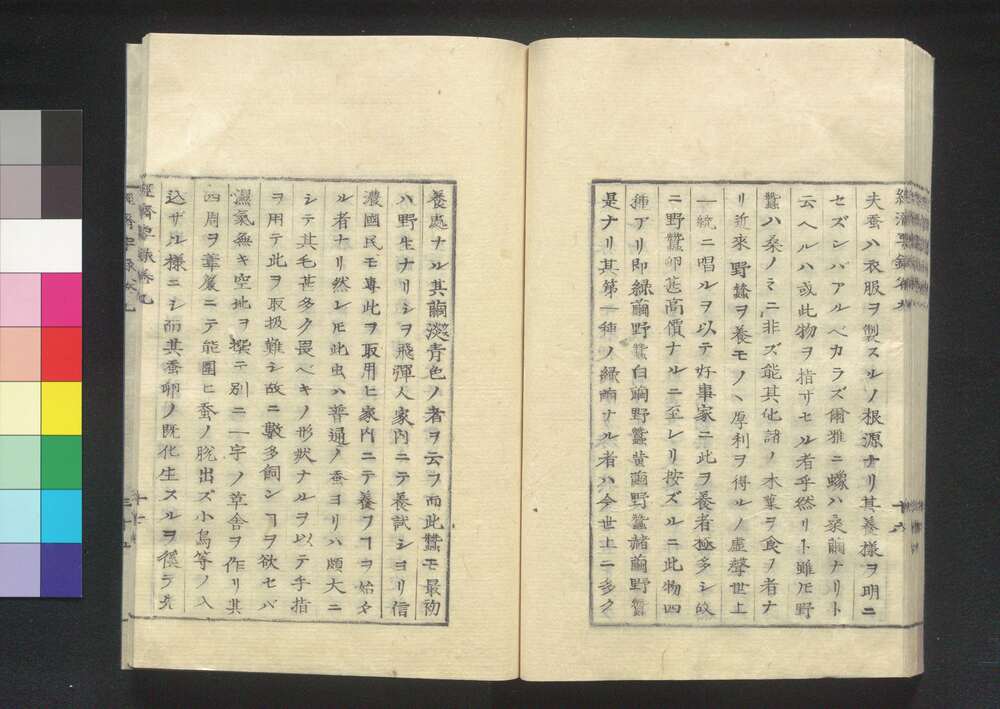 夫蚕ハ衣服ヲ製スルノ根源ナリ其養様ヲ明ニ
セズンバアルベカラズ爾雅ニ蟓ハ桑繭ナリト
云ヘルハ或此物ヲ指サセル者乎然リト雖𪜈野
蠶ハ桑ノミニ非ズ能其他諸ノ木葉ヲ食ノ者ナ
リ近來野蠶ヲ養モノハ厚利ヲ得ルノ虚聲世上
一統ニ唱ルヲ以テ好事家ニ此ヲ養者極多シ故
ニ野蠶卵甚高價ナルニ至レリ按ズルニ此物四
種アリ即緑繭野蠶白繭野蠶黄繭野蠶赭繭野蠶
是ナリ其第一種ノ緑繭ナル者ハ今世上ニ多ク
養處ナル其繭淡青色ノ者ヲ云フ而此蠶モ最初
ハ野生ナリシヲ飛彈人家内ニテ養試シヨリ信
濃國民モ專此ヲ取用ヒ家内ニテ養フヿヲ始タ
ル者ナリ然レ𪜈此虫ハ普通ノ蚕ヨリハ頗大ニ
シテ其毛甚多ク畏ベキノ形状ナルヲ以テ手指
ヲ用テ此ヲ取扱難シ故ニ數多飼ンヿヲ欲セバ
濕氣無キ空地ヲ撰テ別ニ一宇ノ草舎ヲ作リ其
四周ヲ葦簾ニテ能圍ヒ蚕ノ脱出ズ小鳥等ノ入
込ザル様ニシ而其蚕卵ノ既化生スルヲ俟テ先